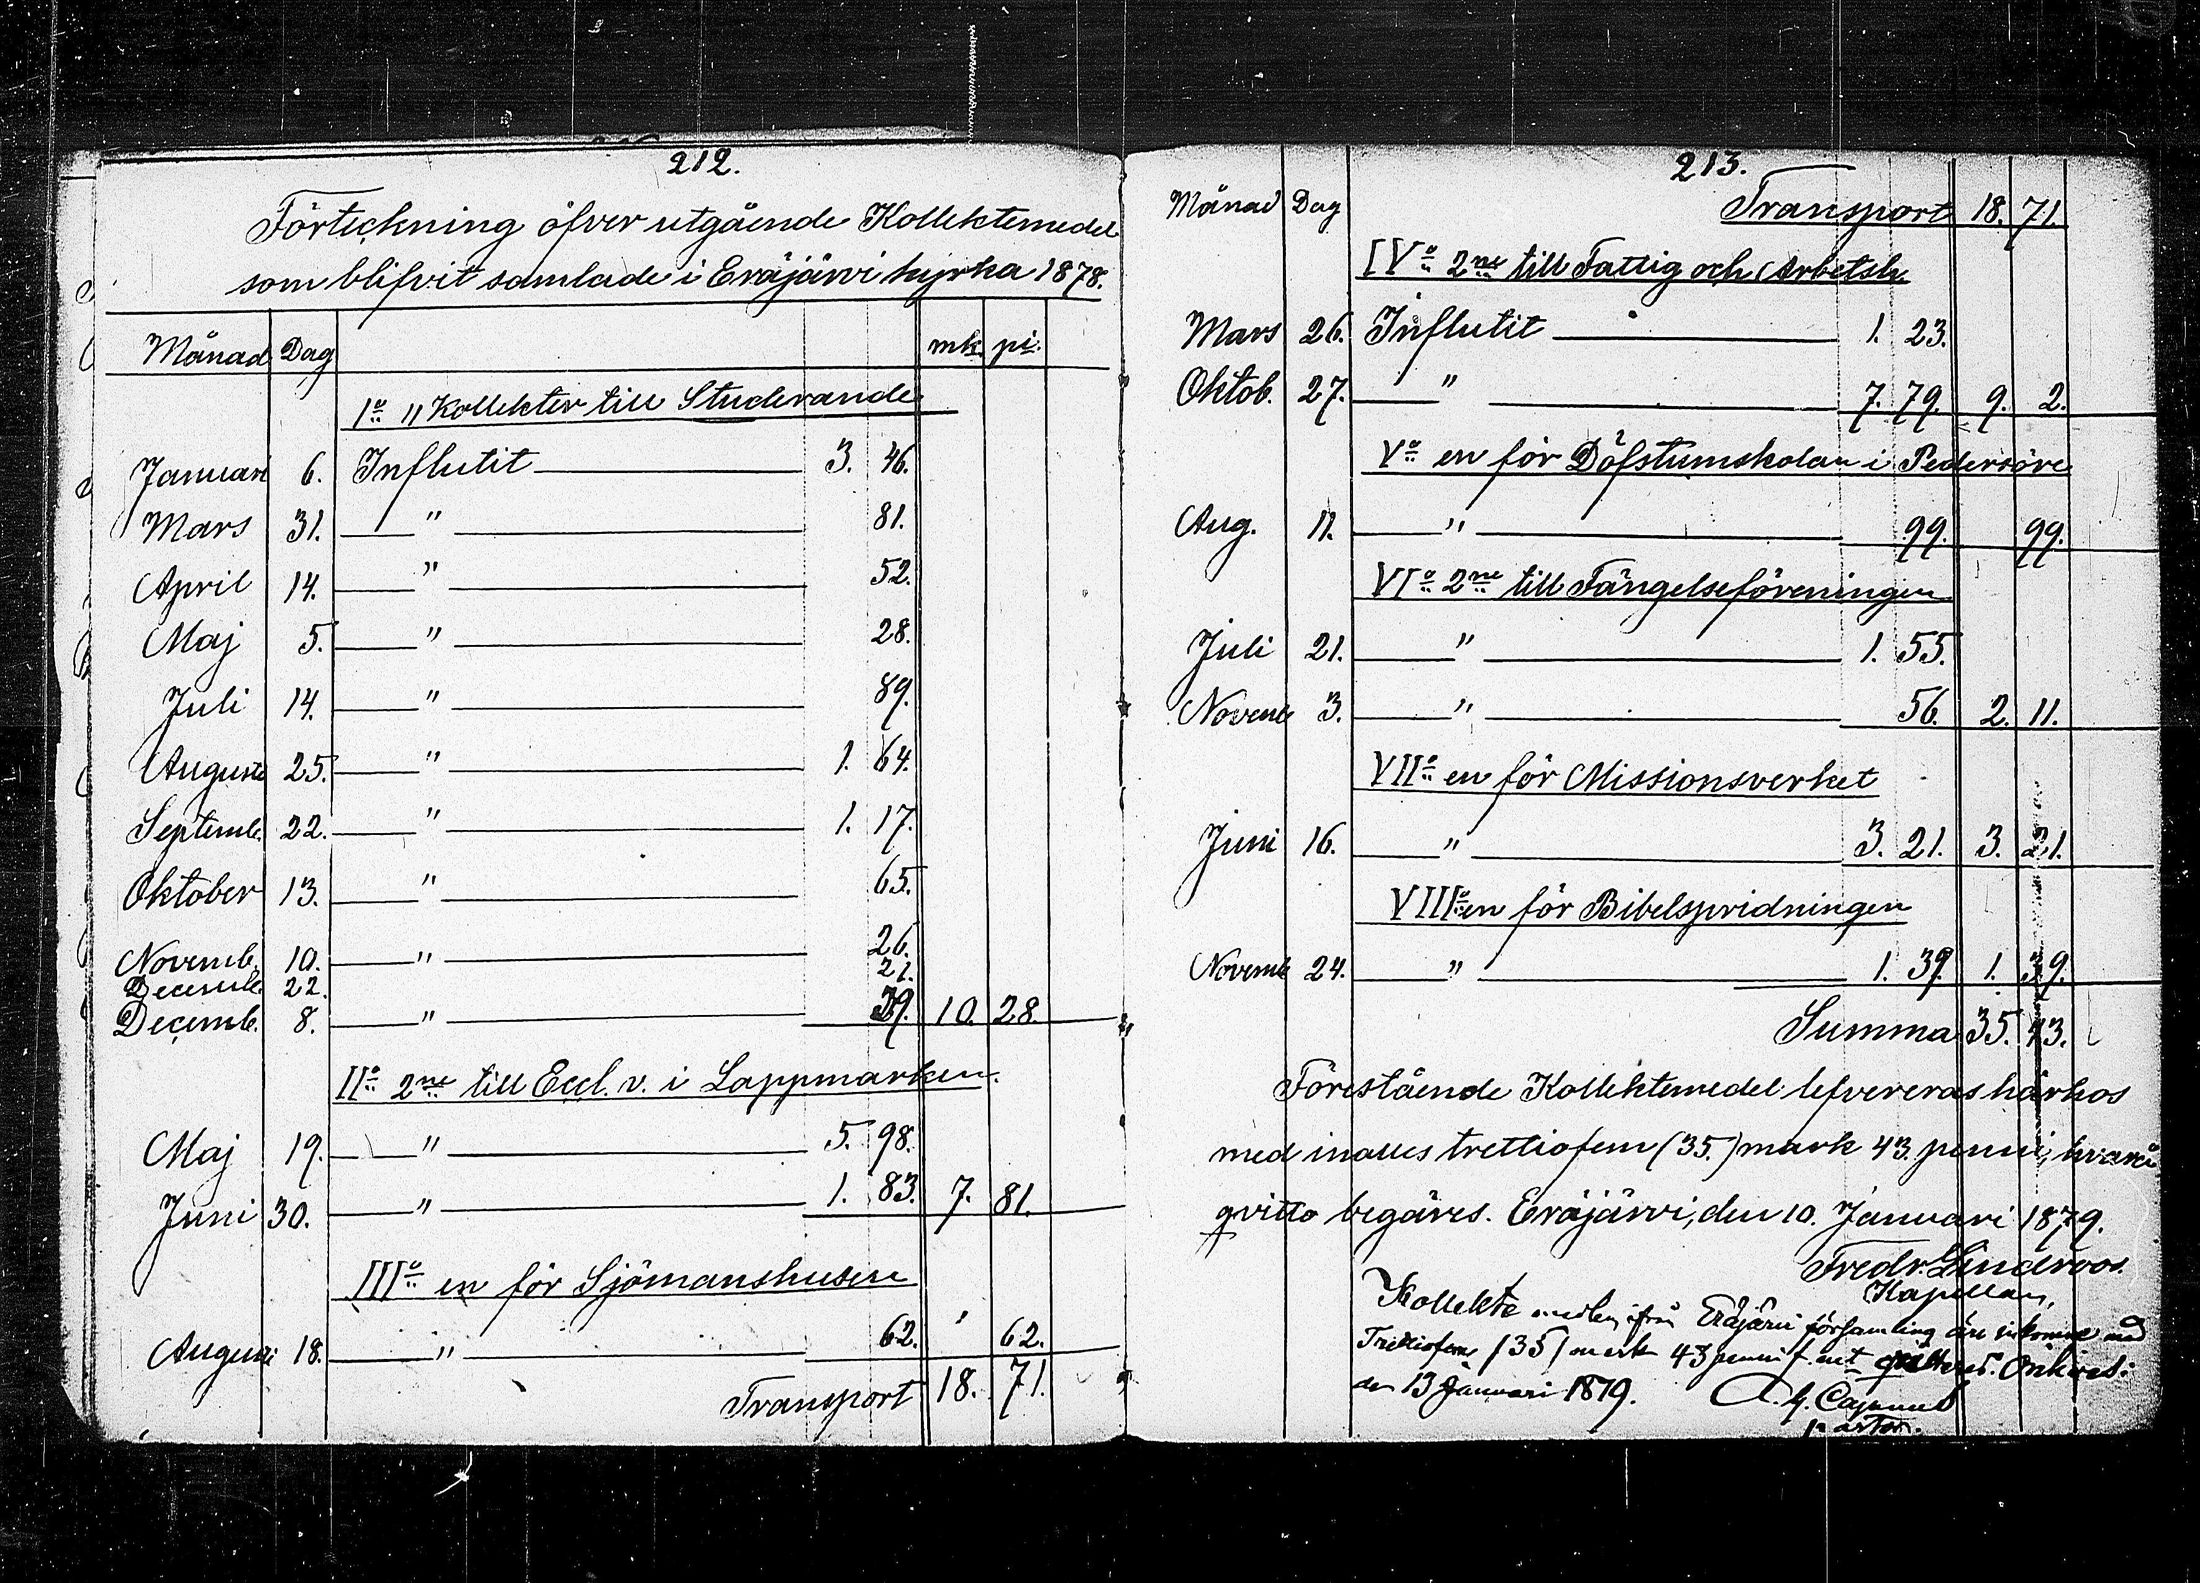 212.
Förteckning öfver utgående Kollektemedel
som blifvit samlade i Eräjärvi kyrka 1878.
Månad Dag mk. pi.
I:o 11 Kollekter till Studerande
Januari 6. Influtit 3. 46.
Mars 31. " 81.
April 14. " 52.
Maj 5. " 28.
Juli 14. " 89.
Augusti 25. " 1. 64.
Septemb. 22. " 1. 17.
Oktober 13. " 65.
Novemb. 10. " 26.
Decemb. 22. 21.
Decemb. 8. " 39. 10. 28.
II:o 2ne till Eccl. v. i Lappmarken.
Maj 19. " 5. 98.
Juni 30. " 1. 83. 7. 81.
III:o en för Sjömanshusen
Augusti 18. " 62. 62.
Transport 18. 71.
213.
Månad Dag Transport 18. 71.
IV:o 2ne till Fattig och Arbetsh.
Mars 26. Influtit 1. 23.
Oktob. 27. " 7. 79. 9. 2.
V:o en för Döfstumskolan i Pedersöre
Aug. 11. " 99. 99.
VI:o 2ne till Fängelseföreningen
Juli 21. " 1. 55.
Novemb 3. " 56. 2. 11.
VII:o en för Missionsverket
Juni 16. " 3. 21. 3. 21.
VIII:o en för Bibelspridningen
Novemb 24. " 1. 39. 1. 39.
Summa 35. 43.
Förestående Kollektemedel lefvereras härhos
med inalles trettiofem (35.) mark 43. penni, hvarå
qvitto begäres. Eräjärvi, den 10. Januari 1879.
Fredr. Lindroos.
Kapellan,
Kollekte medlen ifrån Eräjärvi församling äro inkomne med
Trettiofem (35) mark 43 penni f. mt qvitteras. Orihvesi
den 13 Januari 1879. A. G.
Pastor.